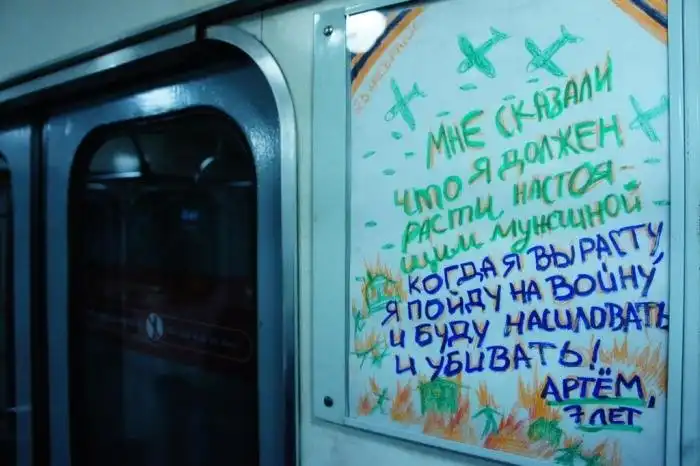 МНЕ СКАЗАЛИ
ЧТО Я ДОЛЖЕН
РАСТИ НАСТОЯ-
ЩИМ МУЖЩИНОЙ
КОГДА Я ВЫРАСТУ,
Я ПОЙДУ НА ВОЙНУ
И БУДУ НАСИЛОВАТЬ
И УБИВАТЬ!
АРТЁМ,
7 ЛЕТ